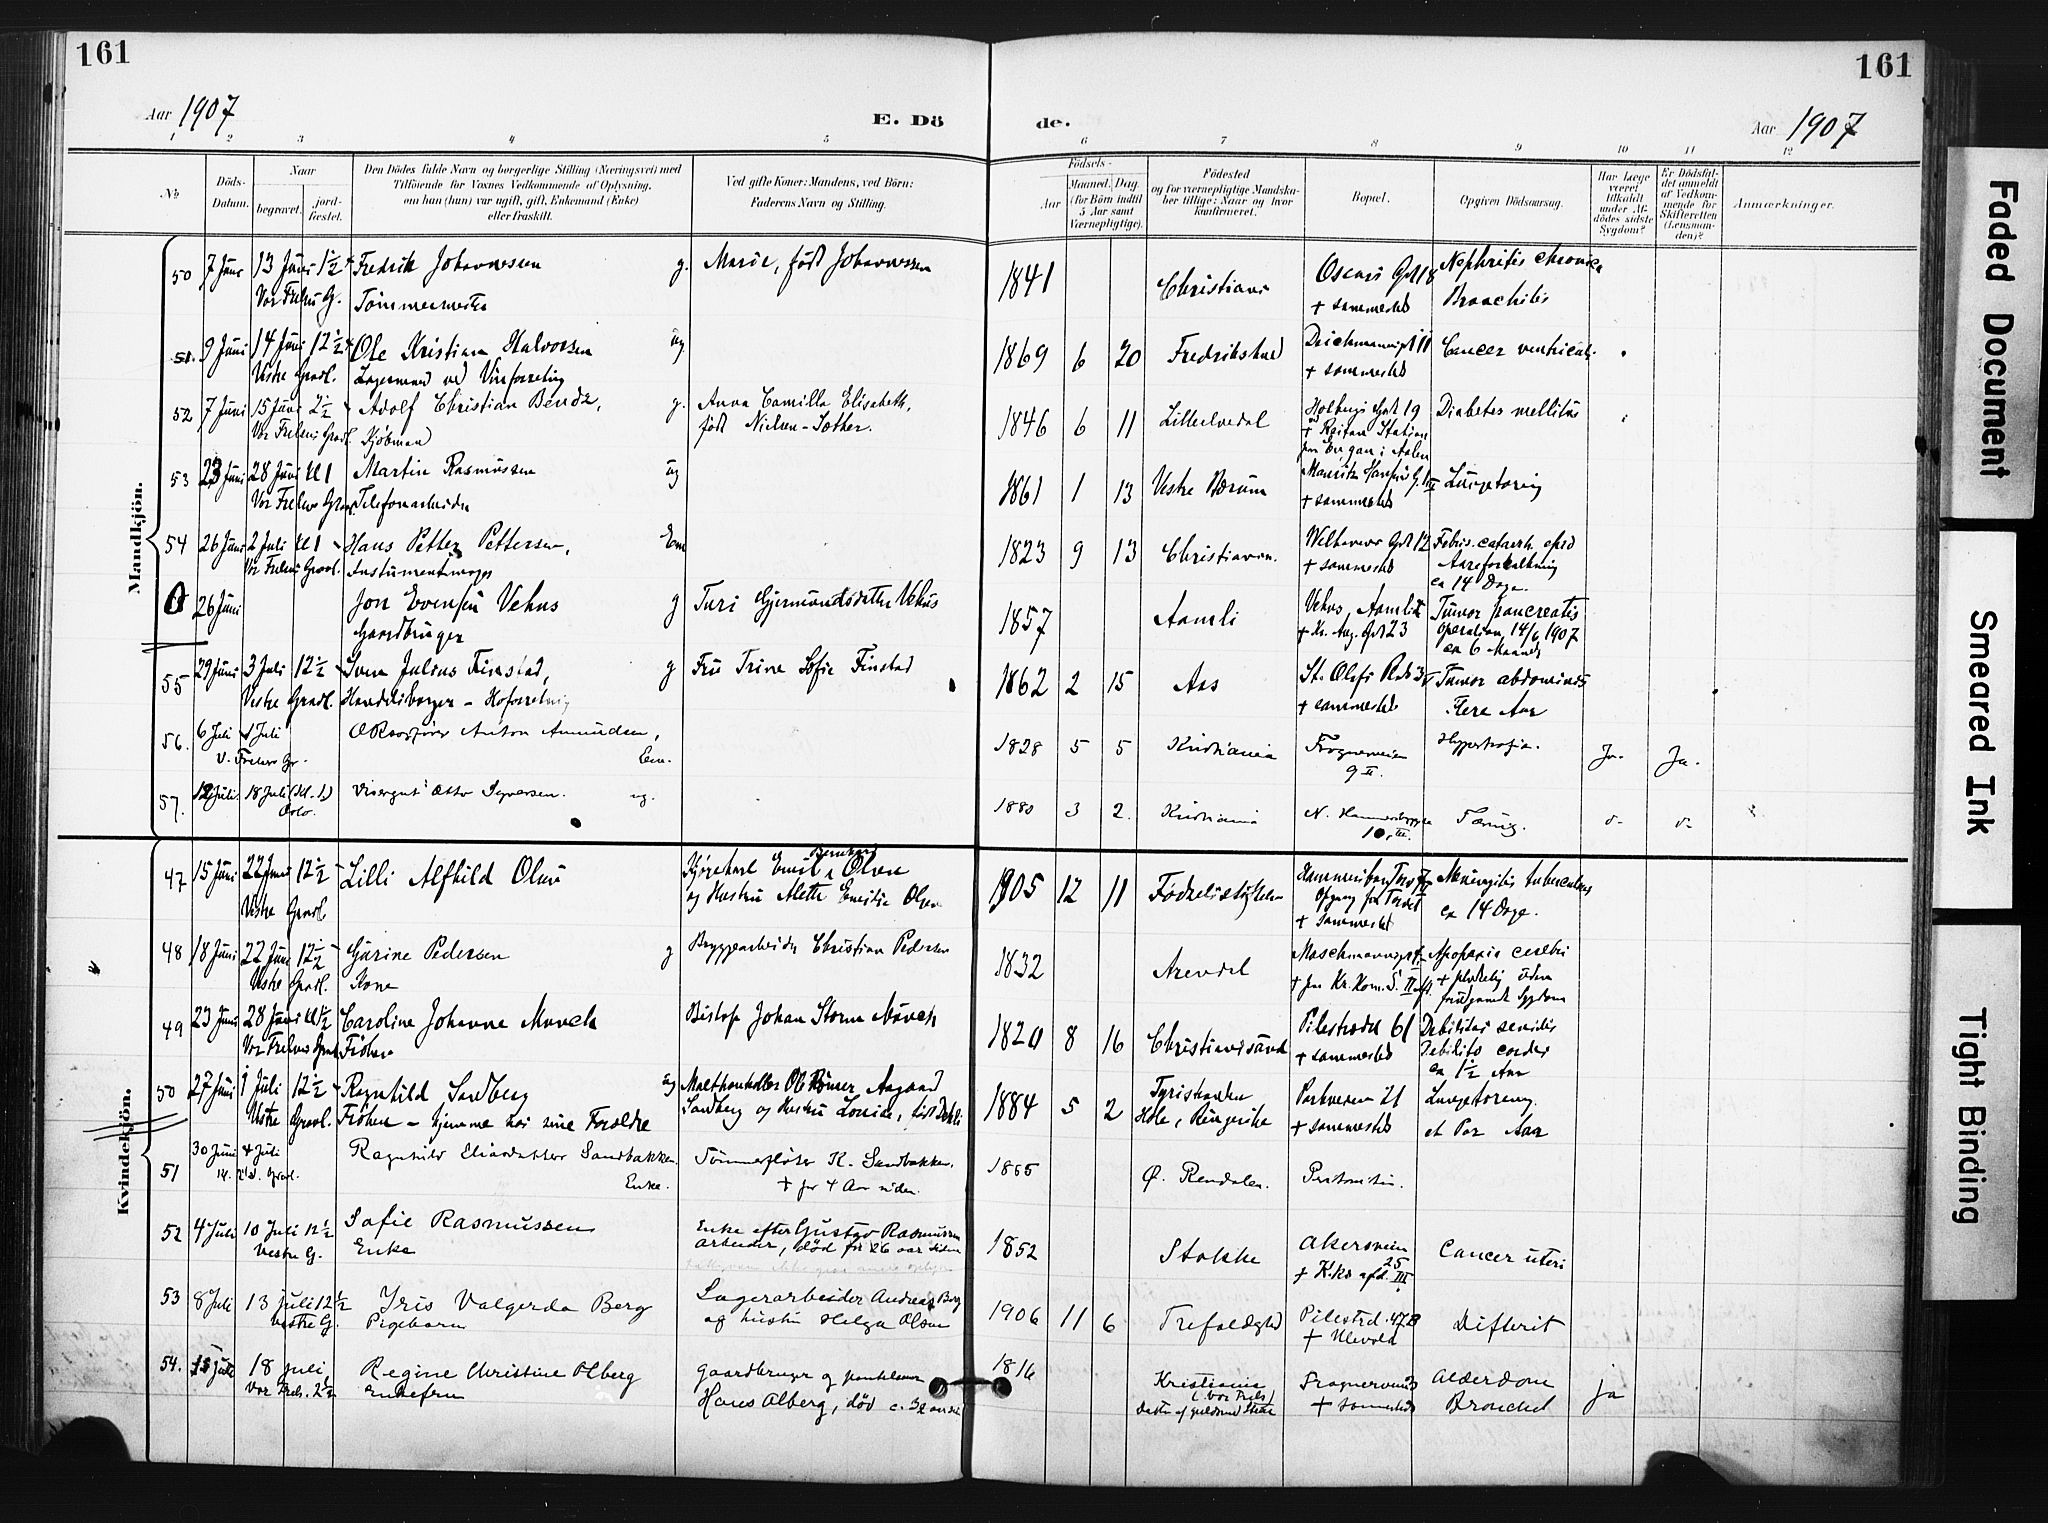 161
161
Aar 1907
E. Dö
de.
Aar 1907
1 2 3 4 5 6 7 8 9 10 11 12
No.
Döds-Datum.
Naar
begravet.
jord-fæstet.
Den Dödes fulde Navn og borgerlige Stilling (Næringsvei) med
Tilföiende for Voxnes Vedkommende af Oplysning,
om han (hun) var ugift, gift, Enkemand (Enke)
eller fraskilt.
Ved gifte Koner: Mandens, ved Börn:
Faderens Navn og Stilling.
Födsels-
Aar
Maaned. Dag
(for Börn indtil
5 Aar samt
Værnepligtige).
Födested
og for værnepligtige Mandska-
ber tillige: Naar og hvor
konfirmeret.
Bopæl.
Opgiven Dödsaarsag.
Har Læge
været
tilkaldt
under Af-
dödes sidste
Sygdom?
Er Dödsfal-
det anmeldt
af Vedkom-
mende for
Skifteretten
(Lensman-
den)?
Anmærkninger.
Mandkjön.
50 7 Juni 13 Juni 1½ Fredrik Johannessen g. Marie, født Johannessen 1841 Christiania Oscars Gd 18 Nephritis chronica
Vor Frelsers G. Tømmermester + sammesteds Bronchitis
51. 9 Juni 14 Juni 12½ Ole Kristian Halvorsen ug 1869 6 20 Fredrikstad Deichmannsgt 11 Cancer ventriculi
Vestre Gravl. Lagermand ved Vinforretning + sammesteds
52 7 Juni 15 Juni 2½ Adolf Christian Bendz, g. Anna Camilla Elisabeth, 1846 6 11 Lilleelvedal Holbergs Gd 19 Diabetes mellitus
Vor Frelsers Gravl. Kjøbmand født Nielsen-Sæther. + Reitan Station
53 23 Juni 28 Juni Kl 1 Martin Rasmussen ug 1861 1 13 Vestre Bærum Lungetæring
Vor Frelsers Grav. Telefonarbeider + sammesteds
54 26 Juni 2 Juli Kl 1 Hans Petter Pettersen, Em 1823 9 13 Christiania. Welhavens Gd 12 Febris. catarrh. epid
Vor Frelsers Gravl. Instrumentmager + sammesteds Aareforkalkning
ca 14 Dage.
0 26 Juni Jon Evensen Vehus g Turi Gjermundsdatter Vehus 1857 Aamli Vehus, Aamli Tumor pancreatis
Gaardbruger + Kr. Aug. Gd 23 Operation, 14/6 1907
ca 6 Maaneder
55 29 Juni 3 Juli 12½ Sven Julius Finstad, g Fru Trine Sofie Finstad 1862 2 15 Aas St. Olafs Pl Tumor abdominis
Vestre Gravl. Handelsborger + sammesteds Flere Aar
56. 6 Juli Juli Anton Amundsen, 1828 5 5 Kristiania Frognerveien Hypertrofia. Ja. Ja.
V. Frelsers Gr. Em. 9 II.
57. 12 Juli 18 Juli (Kl. 1) Visergut Otto Syversen. ug. 1880 3 2. Kristiania N. Tæring.
Oslo. 10, III.
Kvindekjön.
47 15 Juni 22 Juni 12½ Lilli Alfhild Olsen Kjørekarl Emil Bernhard Olsen 1905 12 11 Fødselsstiftelsen Meningitis tuberculosa
Vestre Gravl og Hustru Alette Emilie Olsen ca 14 Dage.
+ sammesteds
48 18 Juni 22 Juni 12½ Gurine Pedersen g Bryggearbeider Christian Pedersen 1832 Arendal Apoplexia cerebri
Vestre Gravl. Kone
49 23 Juni 28 Juni Kl 1½ Caroline Johanne Munch Biskop Johan Storm Munch 1820 8 16 Christianssand Pilestrædet 61 Debilitas senilis
Vor Frelsers Grav Frøken + sammesteds Debilitas cordis
ca ½ Aar
50 27 Juni 1 Juli 12½ Ragnhild Sandberg ug Aagaard 1884 5 2 Tyristranden Parkveien 21 Lungetæring.
Vestre Gravl. Frøken – hjemme hos sine Forældre Sandberg og Hustru Louise, Hole, Ringerike + sammesteds et Par Aar
51 30 Juni 4 Juli Ragnhild Eliasdatter Sandbakken. Tømmerfløter K. Sandbakken. 1855 Ø. Rendalen.
Enke. + for 4 Aar siden.
52 4 Juli 10 Juli 12½ Sofie Rasmussen Enke efter Gustav Rasmussen 1852 Stokke Akersveien Cancer uteri
Vestre G. Enke arbeider, død for 26 aar siden 25
53 8 Juli 13 juli 12½ Iris Valgerda Berg Lagerarbeider Andreas Berg 1906 11 6 Trefoldighed Pilestrd. 47B Difterit
Vestre G. Pigebarn og hustru Helga Olsen + Ulevold
54. 15 Juli 18 juli Regine Christine Olberg gaardbruger og 1816 Kristiania Frognerveien Alderdom ja
Vor Frels. Enkefru Hans Olberg, død (Vor Frels) + sammesteds Bronchit
Faded Document
Smeared Ink
Tight Binding